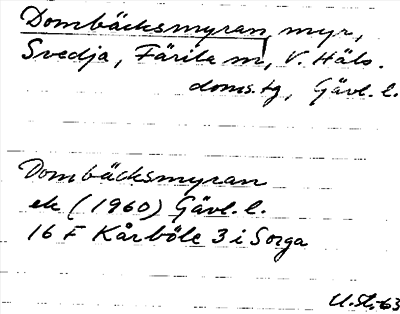 Dombäcksmyran, myr,
Svedja, Färila sn, V. Häls.
doms.tg, Gävl. l.
Dombäcksmyran
ek (1960) Gävl. l.
16 F Kårböle 3 i Sorga
U.St.-63